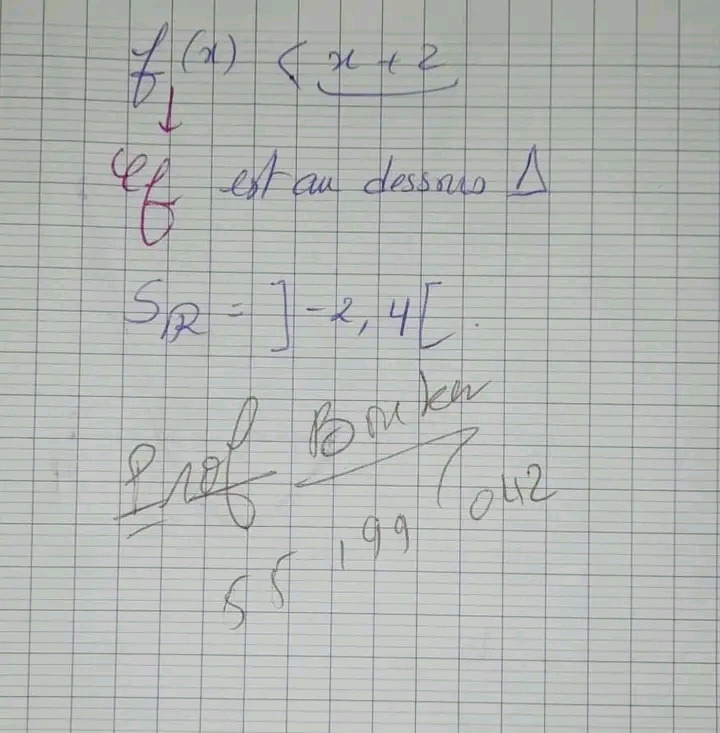 f(x) < x + 2
↓
φf est au dessous Δ
S_ℝ = ]-2, 4[.
Prof Bouker
55,997042